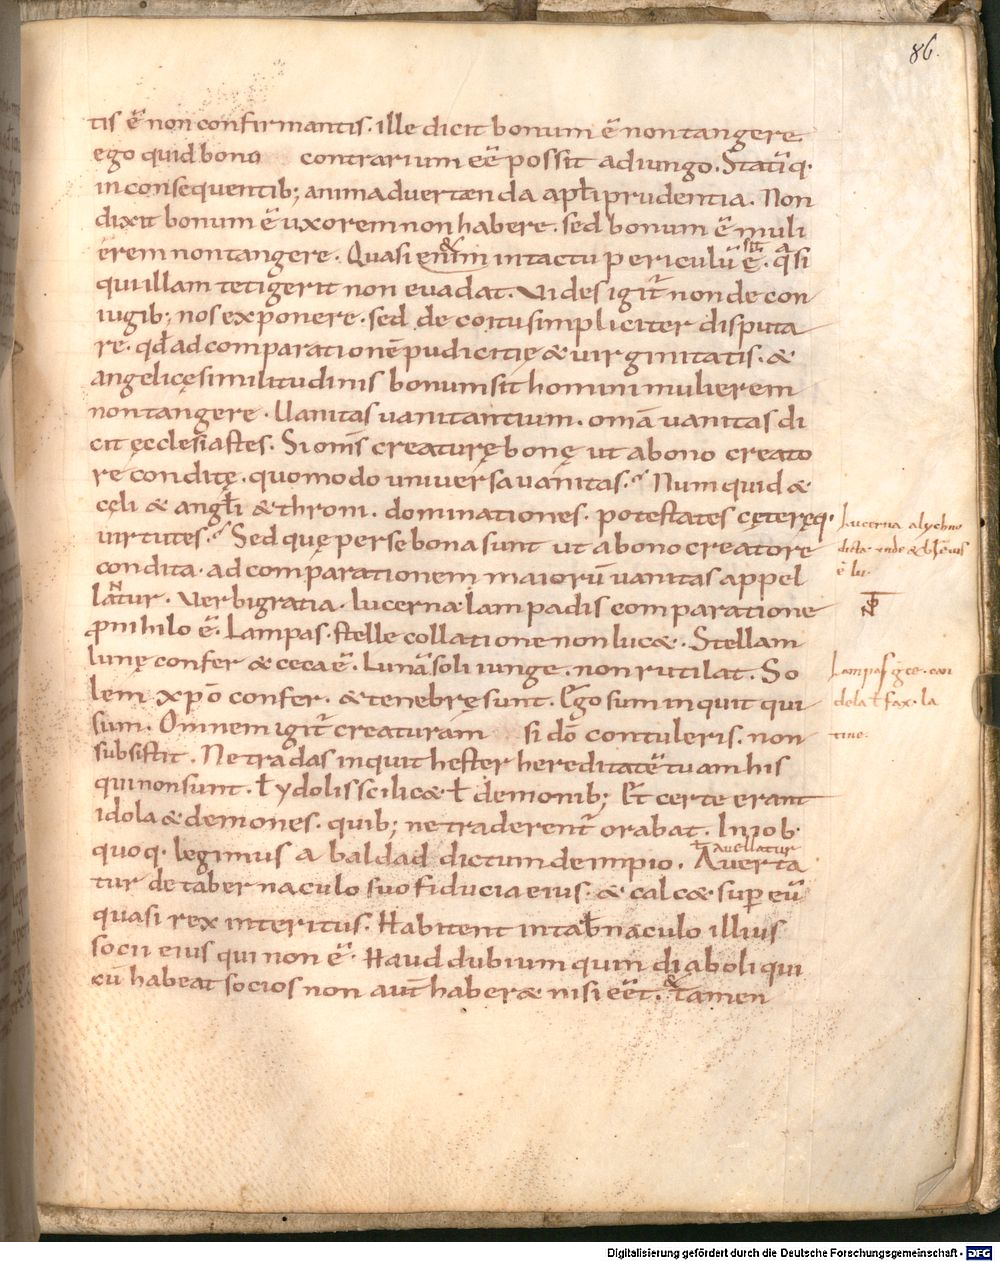 86.
tis ē non confirmantis. ille dicit bonum ē non tangere
ego quid bono contrarium eē possit adiungo. Statīq·
in consequentib; animaduertenda apłi prudentia. Non
dixit bonum ē uxorem non habere. sed bonum ē muli
erem non tangere. Quasi enim & in tactu periculū ē sit. q̄si
qui illam tetigerit non euadat. Uides igit̄ non de con
iugib; nos exponere. sed de coitu simpliciter disputa
re. qđ ad comparationē pudicitię & uirginitatis. &
angelicę similitudinis bonum sit homini mulierem
non tangere. Uanitas uanitantium. omā uanitas di
cit ęcclesiastes. Si om̄s creaturę bonę ut a bono creato
re conditę. quomodo uniuersa uanitas. Numquid &
cęli & angłi & throni. dominationes. potestates cęteręq·
uirtutes. Sed quę per se bona sunt ut a bono creatore
condita. ad comparationem maiorū uanitas appel
latur. N Uerbi gratia. lucerna lampadis comparatione
pro nihilo ē. Lampas. stelle collatione non luc&. Stellam
lunę confer & ceca ē. Lunā soli iunge. non rutilat. So
lem xp̄o confer. & tenebrę sunt. Ego sum inquit qui
sum. Omnem igit̄ creaturam si dō contuleris. non
subsistit. Ne tradas inquit hester hereditatē tuam his
qui non sunt. ł ydolis scilic& ł demonib; Et certe erant
idola & demones. quib; ne traderent̄ orabat. In iob
quoq· legimus a baldad dictum de impio. Auerta
ł auellatur
tur de tabernaculo suo fiducia eius. & calc& sup eū
quasi rex interitus. Habitent in tab̄naculo illius
socii eius qui non ē. Haud dubium quin diaboli qui
cū habeat socios non aut̄ haber& nisi eēt. & Tamen
Lucerna a lychno
dicta unde &
ē lu·
Lampas gręce. can
dela ł fax. la
tine.
Digitalisierung gefördert durch die Deutsche Forschungsgemeinschaft - DFG